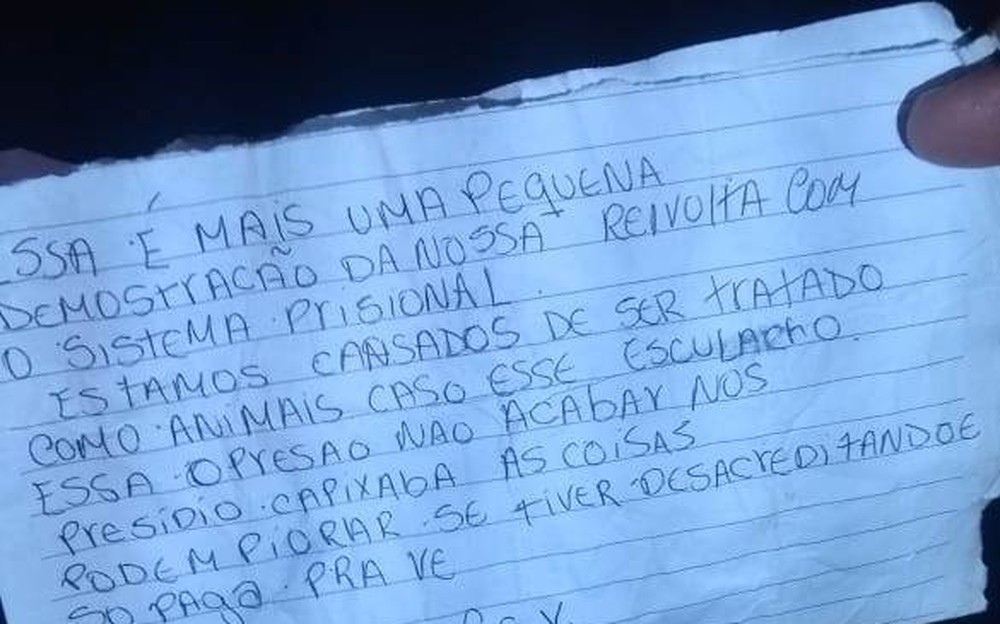 SSA É MAIS UMA PEQUENA
DEMOSTRAÇÃO DA NOSSA REIVOLTA COM
O SISTEMA PRISIONAL.
ESTAMOS CANSADOS DE SER TRATADO
COMO ANIMAIS CASO ESSE ESCULACHO.
ESSA OPRESAO NAO ACABAR NOS
PRESIDIO CAPIXABA AS COISAS
PODEM PIORAR SE TIVER DESACREDITANDOE
SO PAGA PRA VE